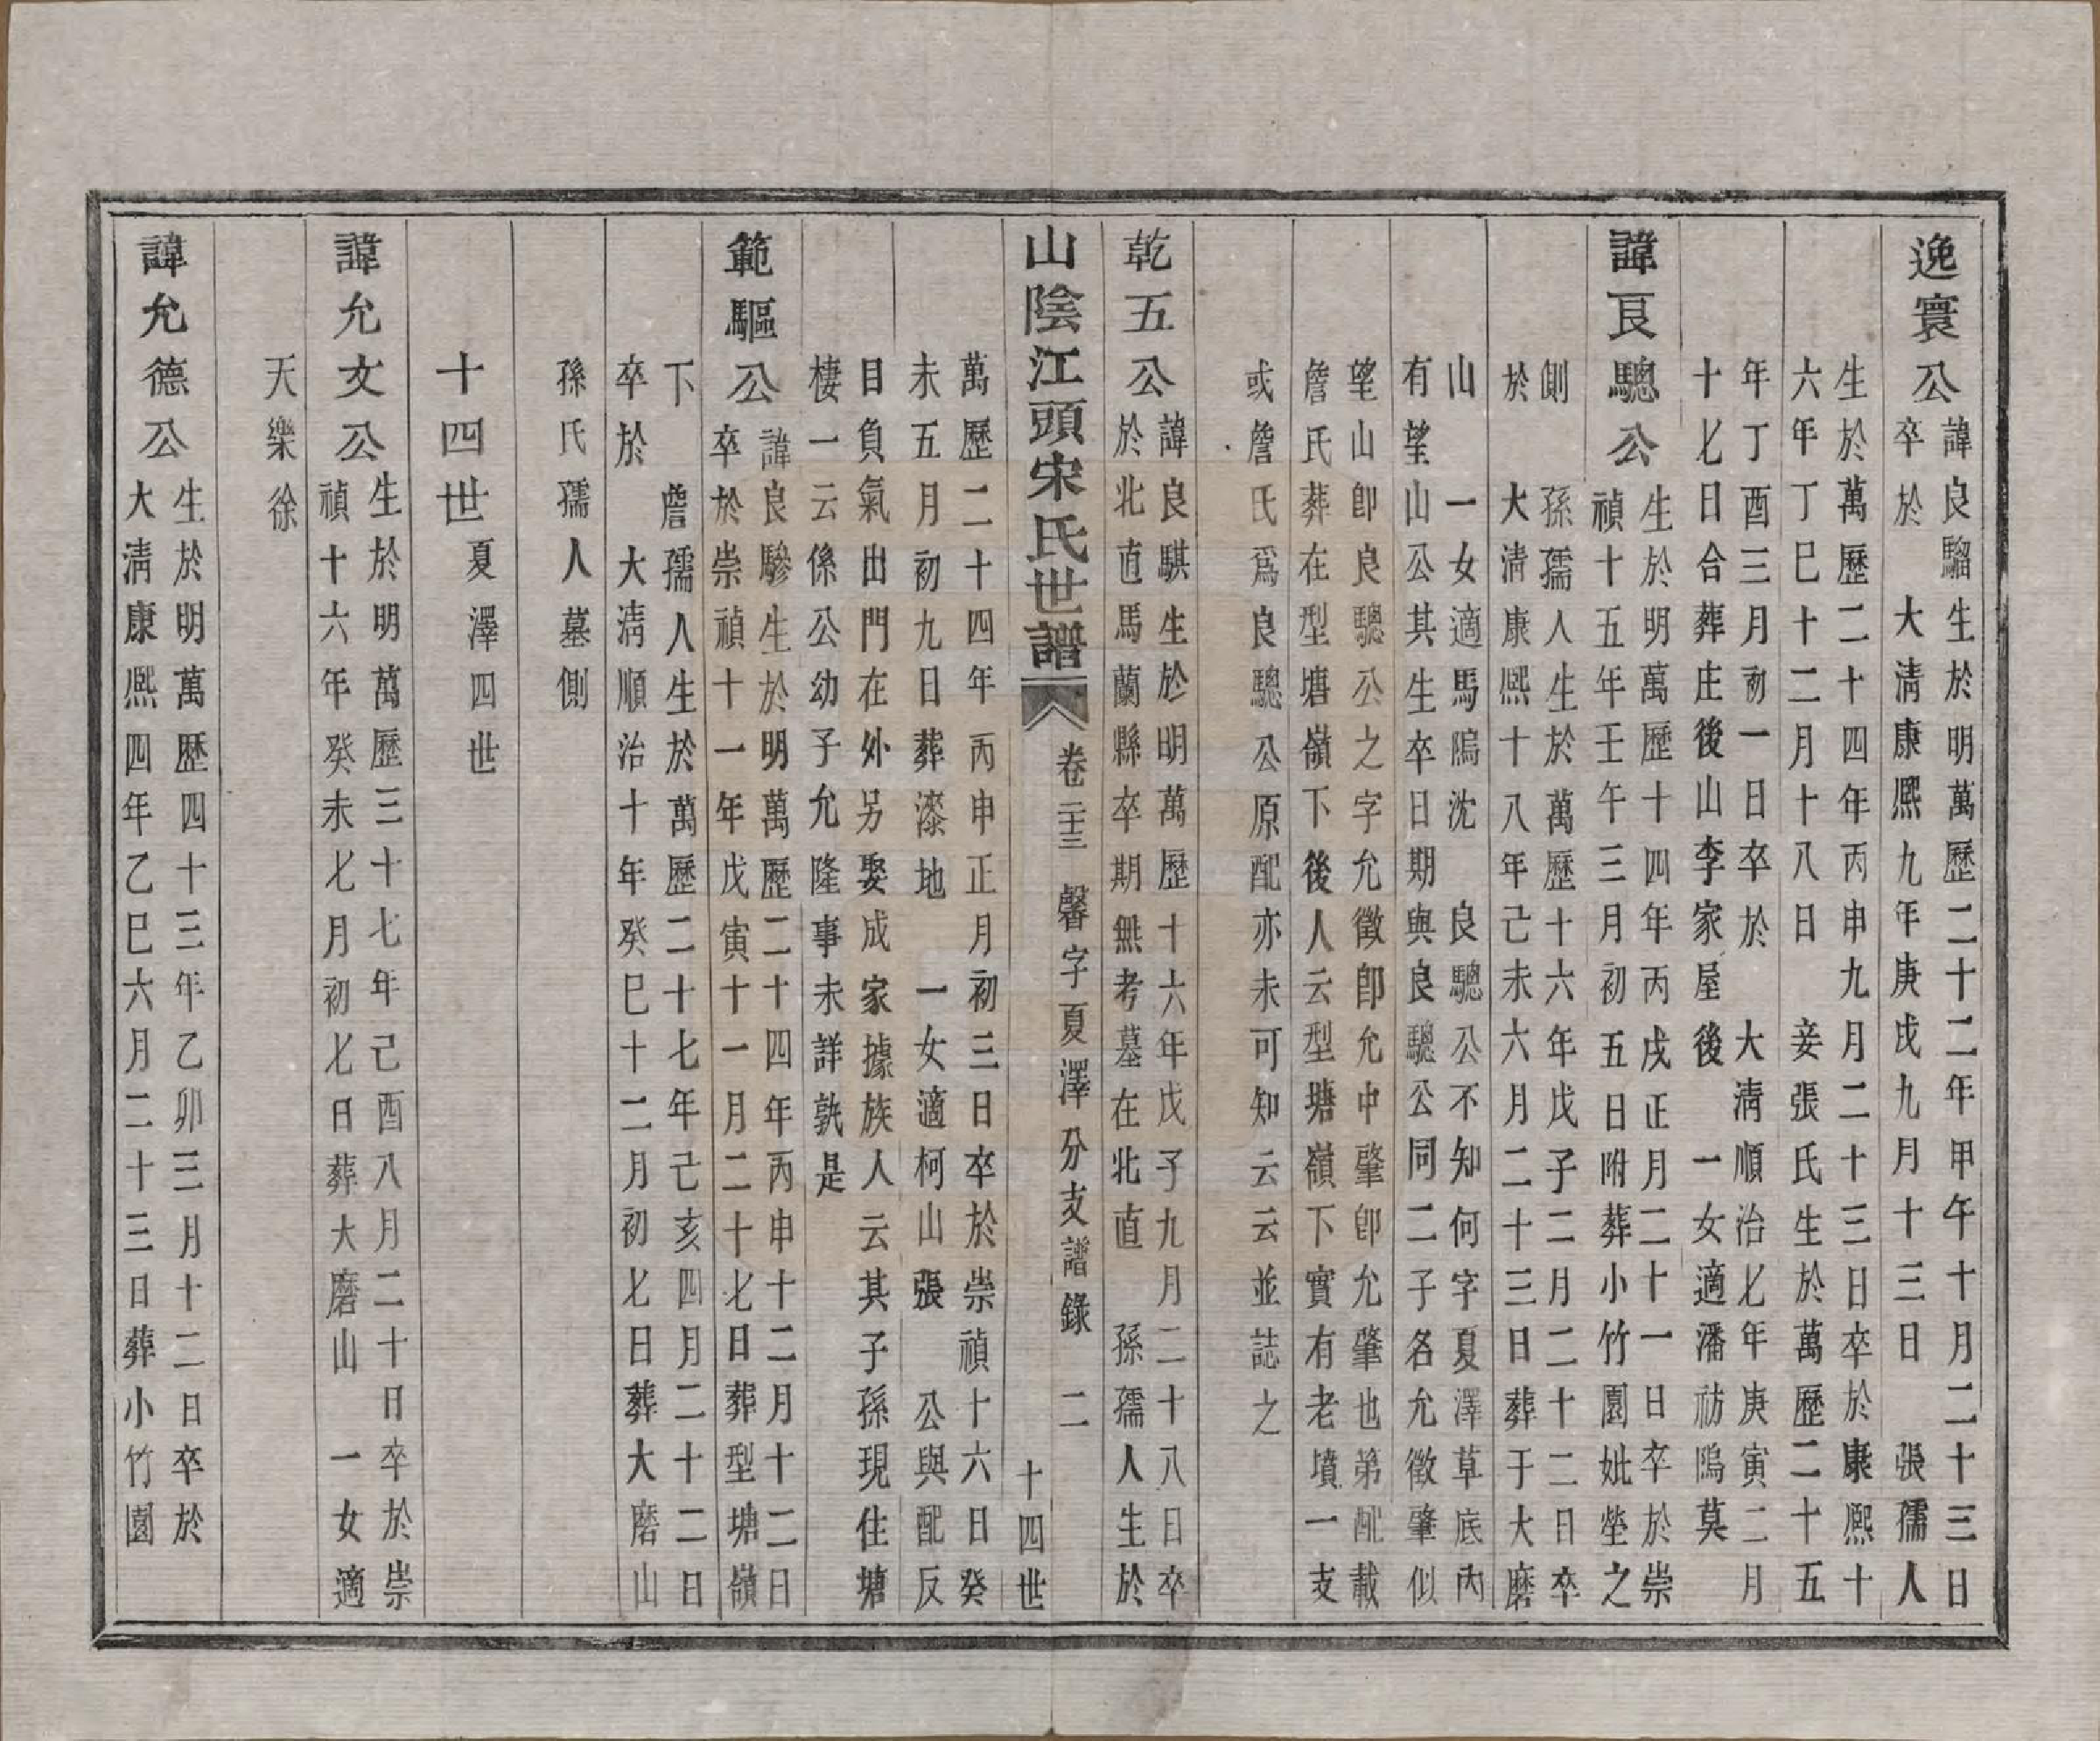 逸寰公
諱良騮生於明萬歷二十二年甲午十月二十三日
卒於　大清康熙九年庚戌九月十三日　張孺人
生於萬歷二十四年丙申九月二十三日卒於康熙十
六年丁巳十二月十八日　妾張氏生於萬歷二十五
年丁酉三月初一日卒於　大清順治七年庚寅二月
十七日合葬庄後山李家屋後　一女適潘舫隝莫
諱良驄公
生於明萬歷十四年丙戌正月二十一日卒於崇
禎十五年壬午三月初五日附葬小竹園妣塋之
側　孫孺人生於萬歷十六年戊子二月二十二日卒
於　大清康熙十八年己未六月二十三日葬于大磨
山　一女適馬隝沈　良驄公不知何字夏澤草底內
有望山公其生卒日期與良驄公同二子名允徵肇似
望山卽良驄公之字允徵卽允中肇卽允肇也第配載
詹氏葬在型塘嶺下後人云型塘嶺下實有老墳一支
或詹氏爲良驄公原配亦未可知云云並誌之
乾五公
諱良騏生於明萬歷十六年戊子九月二十八日卒
於北直馬蘭縣卒期無考墓在北直　孫孺人生於
山陰江頭宋氏世譜　卷二十三　馨字夏澤分支譜錄　二　十四世
萬歷二十四年丙申正月初三日卒於崇禎十六日癸
未五月初九日葬漆地　一女適柯山張　公與配反
目負氣出門在外另娶成家據族人云其子孫現住塘
棲一云係公幼子允隆事未詳孰是
範驅公
諱良驂生於明萬歷二十四年丙申十二月十二日
卒於崇禎十一年戊寅十一月二十七日葬型塘嶺
下　詹孺人生於萬歷二十七年己亥四月二十二日
卒於　大清順治十年癸巳十二月初七日葬大磨山
孫氏孺人墓側
十四世　夏澤四世
諱允文公
生於明萬歷三十七年己酉八月二十日卒於崇
禎十六年癸未七月初七日葬大磨山　一女適
天樂徐
諱允德公
生於明萬歷四十三年乙卯三月十二日卒於
大清康熙四年乙巳六月二十三日葬小竹園